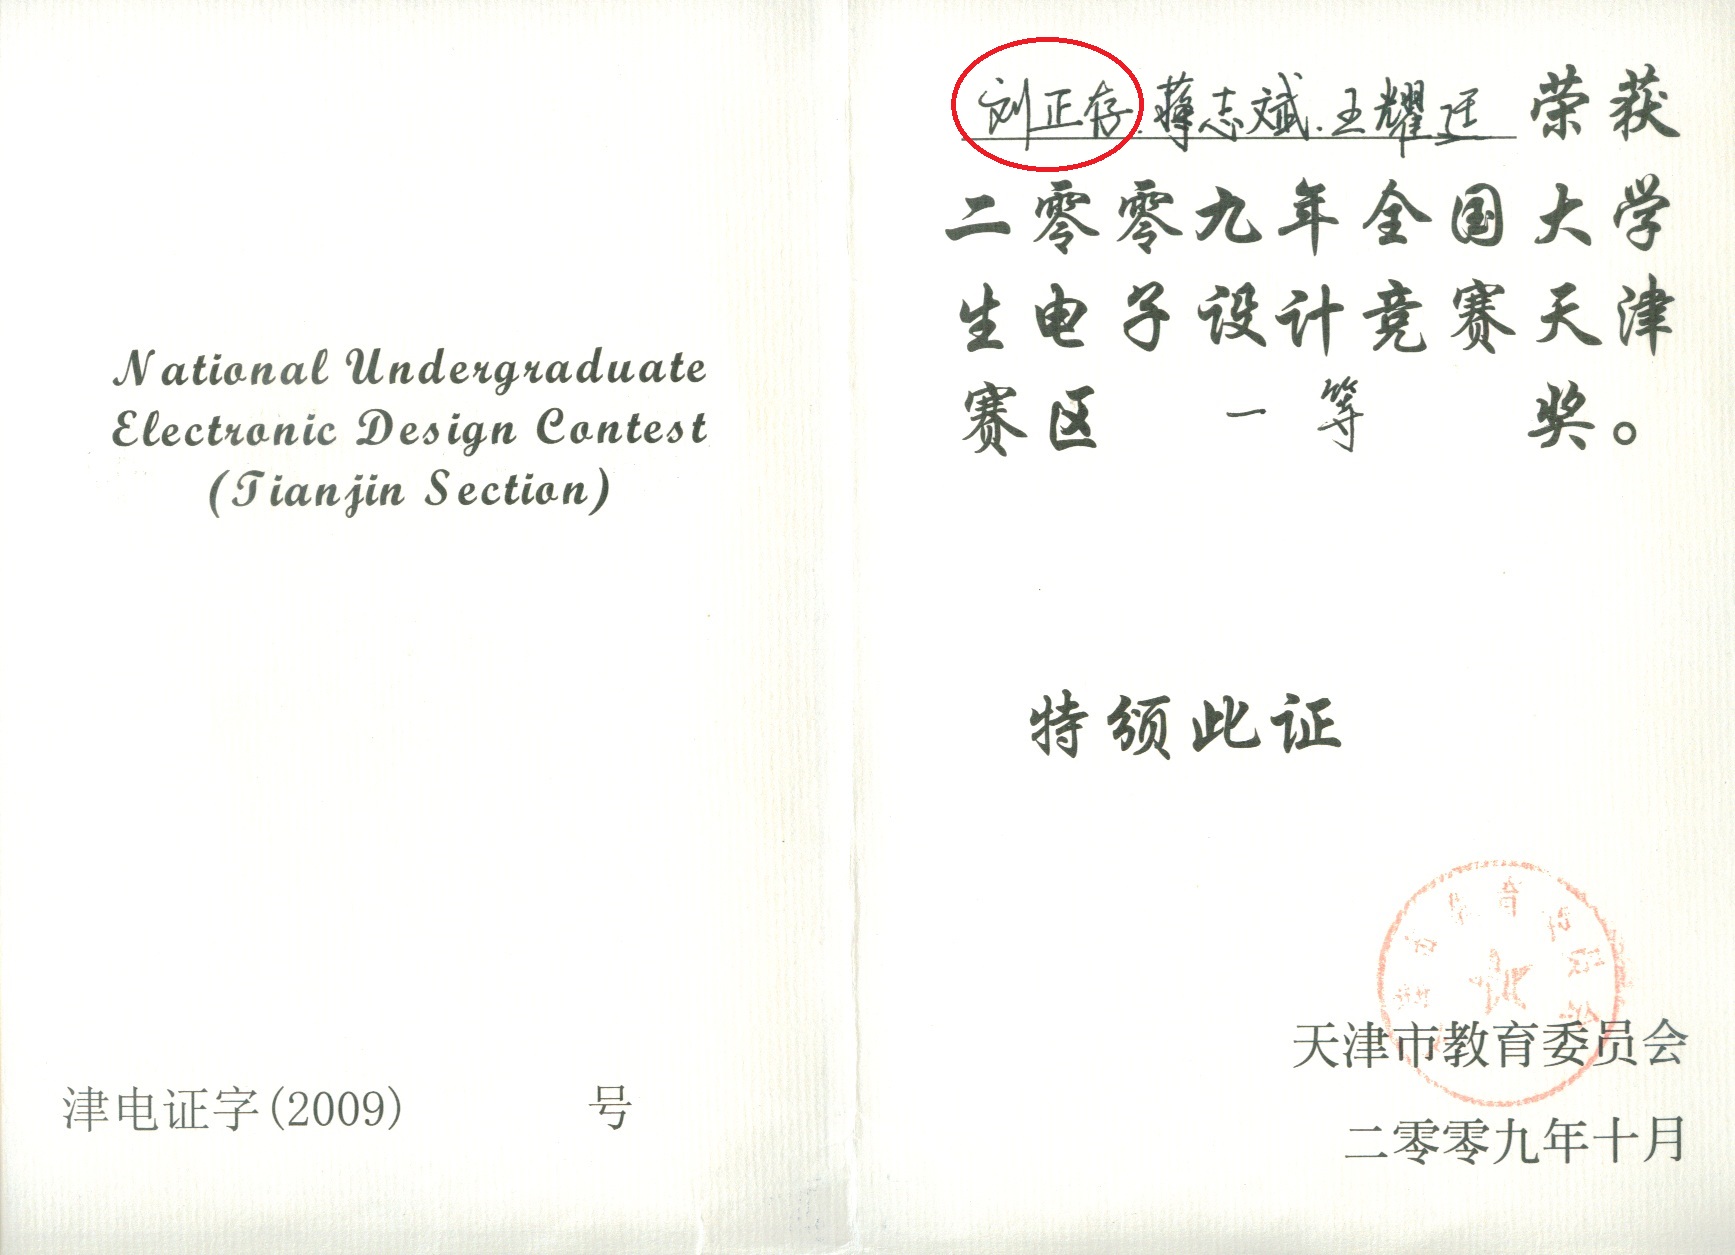 National Undergraduate
Electronic Design Contest
(Tianjin Section)
津电证字(2009) 号
刘正存.蒋志斌.王耀廷 荣获
二零零九年全国大学
生电子设计竞赛天津
赛区 一等 奖。
特颁此证
天津市教育委员会
天津市教育委员会
二零零九年十月